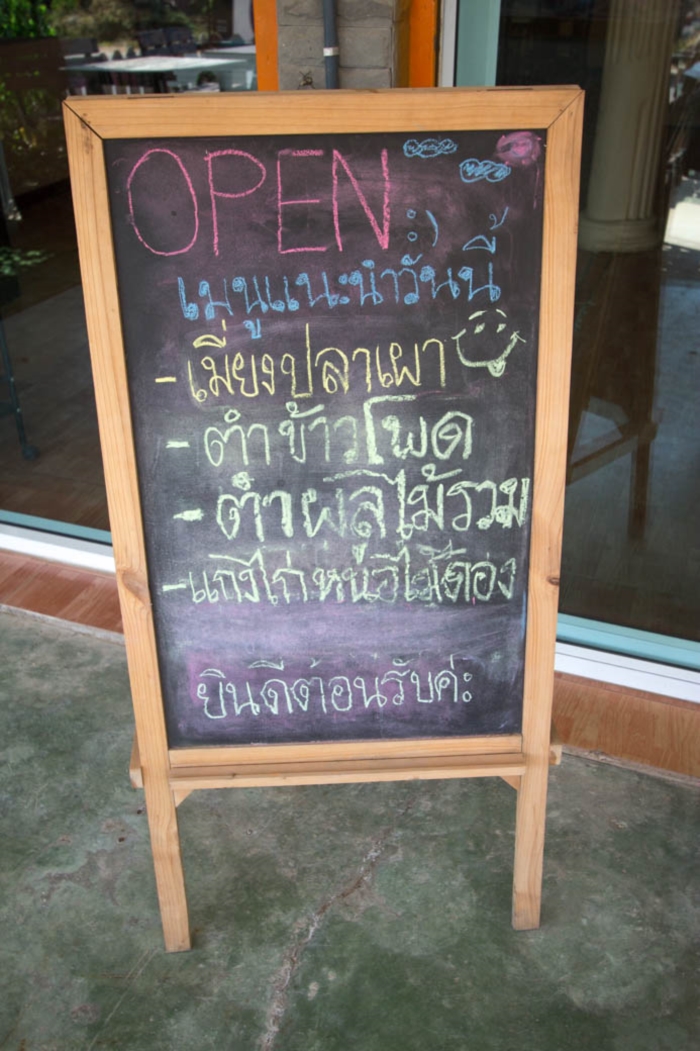 OPEN :)
เมนูแนะนำวันนี้
- เมี่ยงปลาเผา
- ตำข้าวโพด
- ตำผลไม้รวม
- แกงไก่หน่อไม้ดอง
ยินดีต้อนรับค่ะ